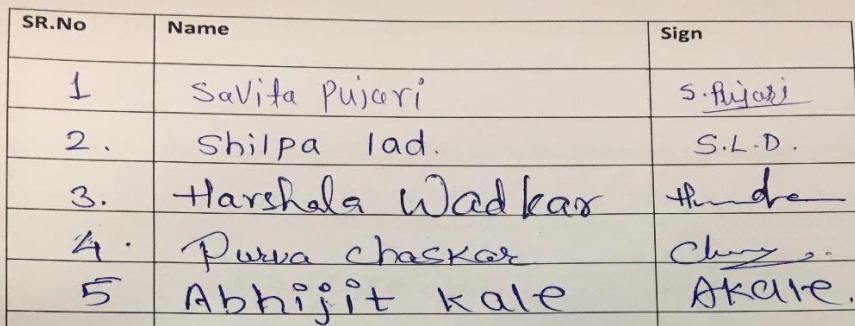 SR.No Name Sign
1 Savita Pujari S.Pujari
2. Shilpa lad. S.L.D.
3. Harshala Wadkar
4. Purva Chaskar
5 Abhijit kale AKale.